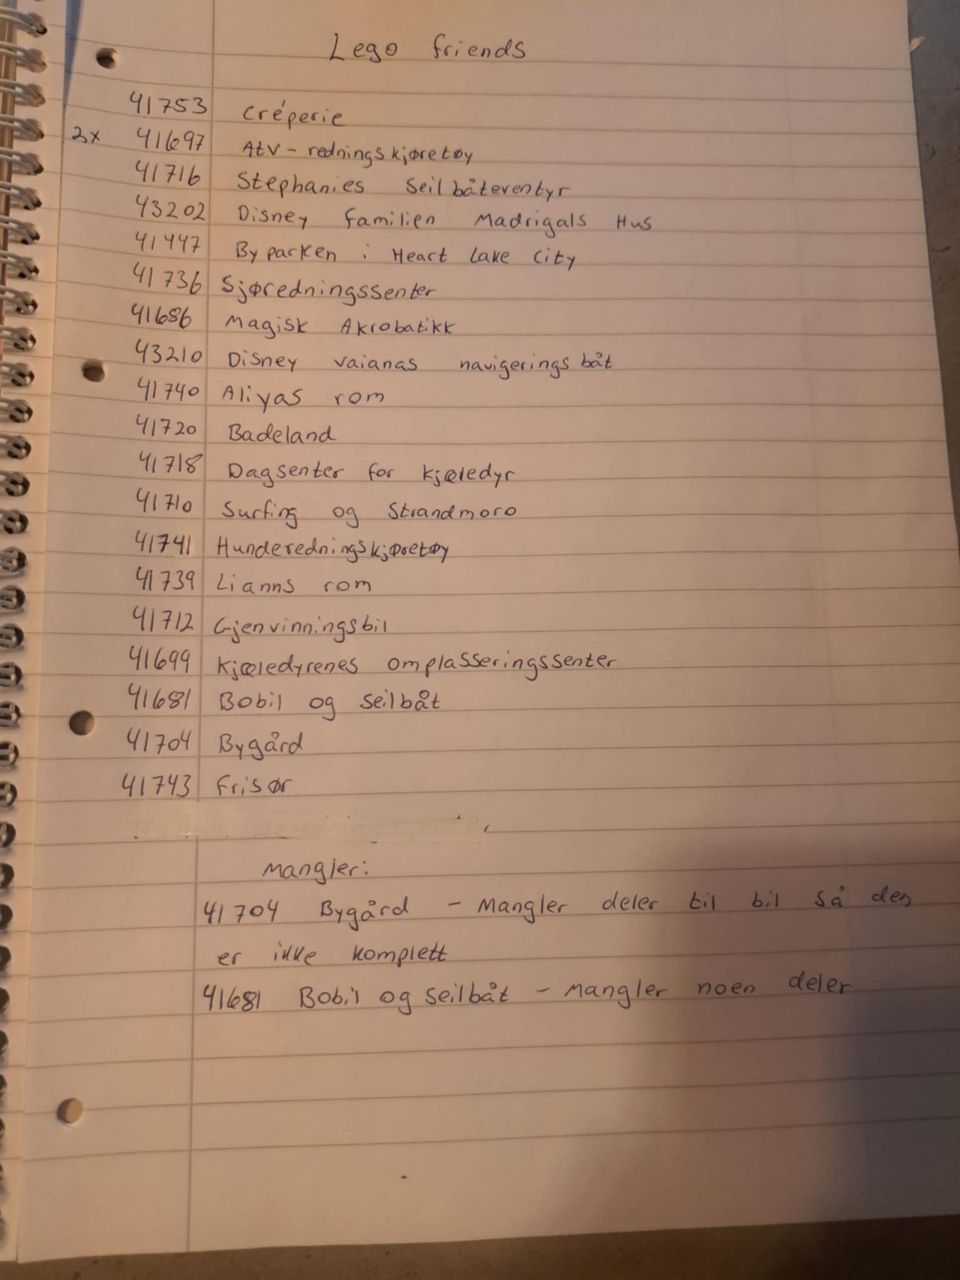 Lego friends
41753 Créperie
2x 41697 Atv - rednings kjøretøy
41716 Stephanies Seilbåteventyr
43202 Disney familien Madrigals Hus
41447 Byparken i Heart lake City
41736 Sjøredningssenter
41686 Magisk Akrobatikk
43210 Disney vaianas navigerings båt
41740 Aliyas rom
41720 Badeland
41718 Dagsenter for kjæledyr
41710 Surfing og Strandmoro
41741 Hunderedningskjøretøy
41739 Lianns rom
41712 Gjenvinningsbil
41699 kjæledyrenes omplasseringssenter
41681 Bobil og seilbåt
41704 Bygård
41743 frisør
Mangler:
41704 Bygård - Mangler deler til bil så den
er ikke komplett
41681 Bobil og seilbåt - Mangler noen deler